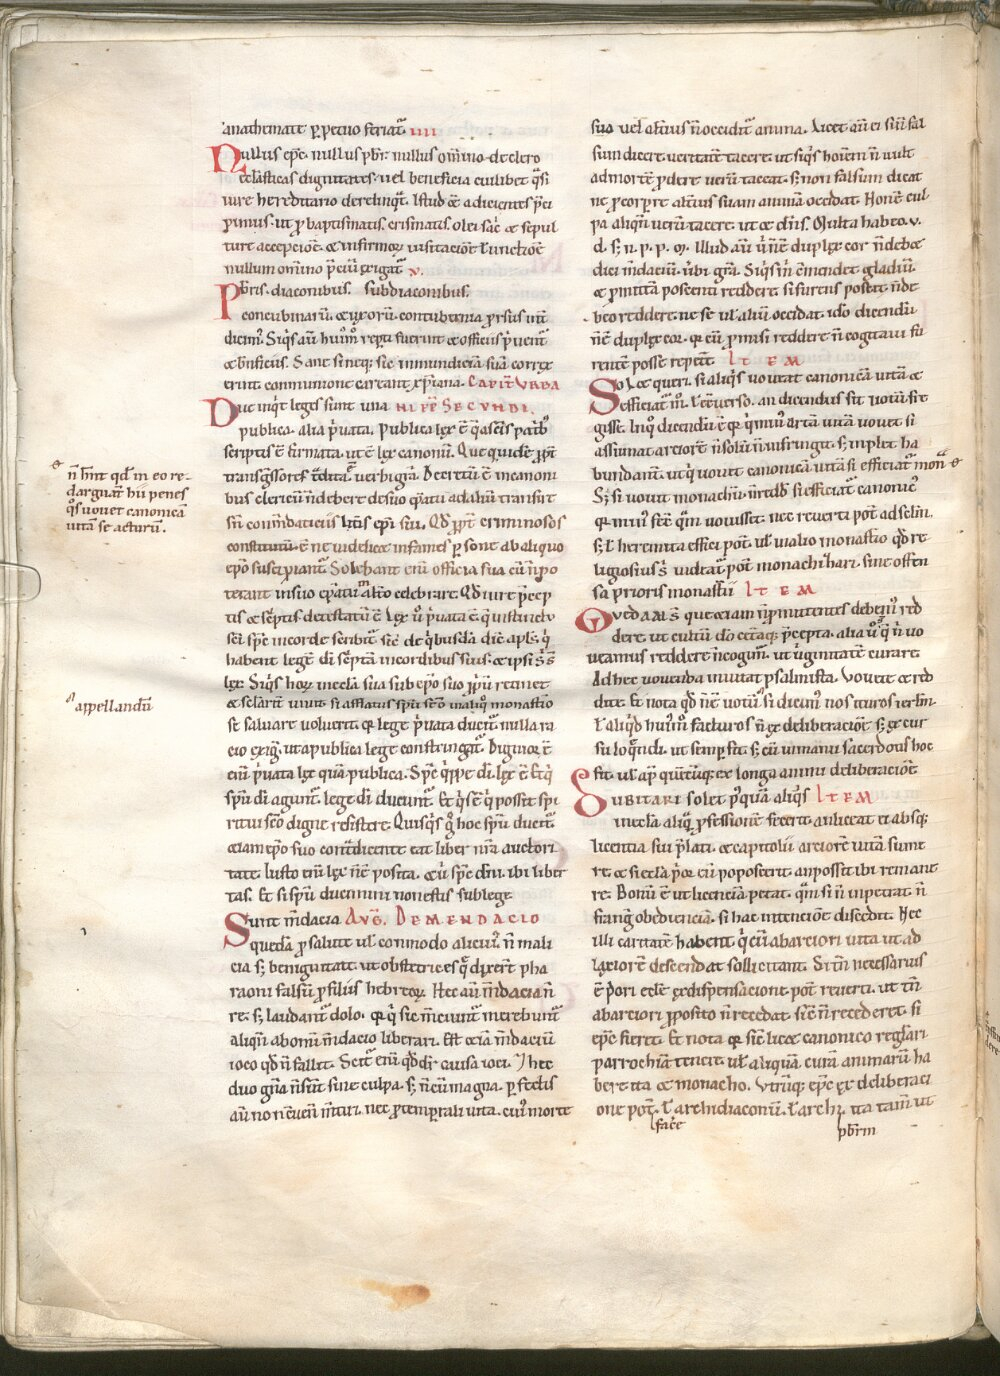 anathemate ꝑpetuo feriat᷑. IIII
Nullus ep̄c. nullus pb̄r. nullus om̄ino de clero
ecclīasticas dignitates. uel beneficia cuilibet q̄si
iure hereditario derelinq̄t. Istud &amp; adicientes p̄ci
pimus. ut ꝓ baptismatis. crismatis. olei sac̄ &amp; sepul
ture accepcio&#772;e &amp; infirmoꝝ uisitacio&#772;e ł unctio&#772;e
nullum om̄ino p̄ciū exigat᷑. V.
Pb̄ris. diaconibus. subdiaconibus.
concubinarū. &amp; uxorū. contubernia ꝓrsus int̄
dicim᷒. Siq̄s aū hui᷒mōi rep̄ti fuerint &amp; officiis p̄uent᷑
&amp; b̄nficiis. Sane si neq; sic inmundiciā suā correx
erint. communione careant xp̄iana. CAPIT VRBA
Due inq̄t leges sunt. una NI PP̄ SECVNDI.
publica. alia p̄uata. Publica lex ē q̄ a sc̄is patrib᷒
scriptis ē firmata. ut ē lex canonū. Que quidē ꝓpt̄
transg̃ssores tradita. verbi gr̄a. Decretū ē in canoni
bus clericū ñ debere de suo ep̄atu ad aliū transire
sn̄ com̄endaticiis litt̄is ep̄i sui. Qd̄ ꝓpt̄ criminosos
constitutū ē. ne uidelic&amp; infames ꝑsone ab aliquo
ep̄o suscipiant᷑. Solebant eni officia sua cū ñ po
terant in suo ep̄atu in alt̄o celebrare. Qd̄ iure p̄cep
tis &amp; sc̄ptis detestatū ē. Lex ů p̄uata ē. que instinctu
sc̄i sp̄c in corde scribit᷑. sic̄ de q̄busdā dic̄ apl̄s. q̄
habent legē di sc̄ptā in cordibus suis. &amp; ipsi s̄ s̄
lex. Siq̄s horū in ecclā sua sub ep̄o suo ppl̄m retinet
&amp; sclarit̄ uiuit. si afflatus sp̄u sc̄o in aliq̊ monastio
se saluare uoluerit. q̇ lege p̄uata ducit᷑. nulla ra
cio exigit. ut a publica lege constringat᷑. Dignior ē
eni p̄uata lex quā publica. Sp̄c q̄ppe di lex ē. Et q̇
sp̄u di agunt᷑. lege di ducunt᷑. Et q̄s ē q̇ possit spi
ritui sc̄o digne resistere. Quisq̄s g̊ hoc sp̄u ducit᷑
etiam ep̄o suo cont̄dicente eat liber nr̄a auctori
tate. Iusto eni lex ñ ē posita. &amp; ů sp̄c dn̄i. ibi liber
tas. Et si sp̄u ducimini non estis sub lege.
Sunt m̄dacia AVG. DE MENDACIO
quedā ꝓ salute ul̄ commodo alicui᷒. ñ mali
cia s; benignitate. ut obstetrices q̄ dixert̄ pha
raoni falsū ꝓ filiis hebreoꝝ. Hec aū m̄dacia ñ
re. s; laudant᷑ dolo. q̇ q̇ sic m̄ciunt᷑. merebunt᷑
aliqn̄ ab om̄i m̄dacio liberari. Est &amp;iā m̄daciū
ioco qd̄ ñ fallit. Scit᷑ eni. qd̄ dr̄ causa ioci. Et hec
duo gn̄a ñ sūt sine culpa. s; ñ cū magna. Perfectis
aū non cōuen̄ m̄tiri. nec ꝓ temꝑali uita. cui᷒ morte
sua uel alt̄ius ñ occidit᷑ anima. Licet aū ei siñ fal
sum dicere. ueritatē tacere. ut siq̄s hom̄em ñ uult
ad mortē ꝓdere. uerū taceat. s; non falsum dicat.
ne ꝓ corpore alt̄ius suam animā occidat. Non ē cul
pa aliqn̄ uerū tacere. ut &amp; dn̄s. Multa habeo v.
d. s; n. p. p. m. Illud aū ubi nē duplex cor ñ deb&amp;
dici m̄daciū. Verbi gr̄a. Siq̄s m̄ c̄mend&amp; gladiū.
&amp; ꝓmittā poscenti reddere. si furens poscit. ñ de
beo reddere. ne se ul̄ aliū occidat. ido dicendū
ñ ē duplex cor. q̇ cū ꝓmisi reddere ñ cogitaui fu
rente posse repet̄e. ITEM
Sol&amp; queri. si aliq̄s uoueat canonicā uitā &amp;
efficiat᷑ m̊. ł ecc̄uerso. an dicendus sit uotū fre
gisse. Inq̊ dicendū ē. q̇ q̇ min᷒ artā uitā uouet. si
assumat arciorē. ñ solū ñ infringit. s; inplet ha
bundant̄. ut q̇ uouit canonicā uitā si efficiat᷑ mon.
S; si uouit monachū ñ redd&amp; si efficiat᷑ canonic᷒
q̇ min᷒ fec̄ q̄m uouisset. nec reuerti pot̄ ad sclm̄.
s; ł heremita effici pot̄. ul̄ in alio monastio qd̄ re
ligiosius s̄ uideat᷑ pot̄ monachari. sine offen
sa prioris monastii. ITEM
QVEDAM s̄ que &amp;iam ñ ꝓmittentes debem᷒ red
dere. ut cultū do. cetaq; p̄cepta. alia ů q̄ ñ uo
ueamus reddere ñ cogim᷒. ut uginitatē curare.
Ad hec uouenda inuitat psalmista. Vouete &amp; red
dite. Et nota qd̄ ñ ē uotū si dicim᷒ nos ituros ierlm̄.
ł aliq̄d hui᷒m̊i facturos ñ ex deliberacio&#772;e. s; ex cur
su loq̄ndi. ut semꝑ fit. s; cū in manu sacerdotis hoc
fit. ul̄ ap̄ quecūq; ex longa animi deliberacio&#772;e.
DUBITARI solet. p̊quā aliq̄s ITEM
in ecclā aliq̄ ꝓfessionē fecerit. an liceat ei absq;
licentia sui p̄lati. &amp; capitulii arciorē uitā sume
re. &amp; si ecclā p̊or eū poposcerit. an possit ibi remane
re. Bonū ē ut licenciā petat. q̄m si ñ inpetrat. ñ
frangit obedienciā. si hac intencio&#772;e discedit. Nec
illi caritatē habent. q̇ eū ab arciori uita ut ad
laxiorē descendat sollicitant. Si tn̄ necessarius
ē p̊ori eccłe ex dispensacione pot̄ reuerti. ut tn̄
ab arciori ꝓposito ñ recedat. sic̄ ñ recederet. si
ep̄c fieret. Et nota q̇ sic̄ lic&amp; canonico regłari
parrochiā tenere. ul̄ aliquā curā animarū ha
bere. ita &amp; monacho. Vtrūq; ep̄c ex deliberaci
one pot̄. ł archidiaconū. ł archip̄. ita tam̄ ut
fac̄e
pb̄rm
ñ hn̄t qd̄ in eo re-
darguat᷑ hii penes
q̊s uouet canonicā
uitā se acturū.
appellandū